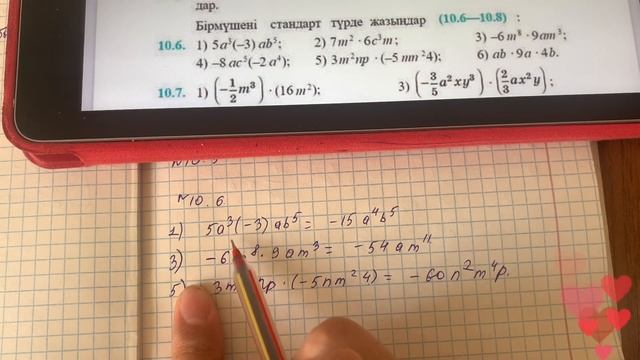 дар.
Бірмүшені стандарт түрде жазыңдар (10.6—10.8) :
10.6. 1) 5a³(−3) ab⁵; 2) 7m² · 6c³m; 3) −6m⁸ · 9am³;
4) −8 ac⁵(−2 a⁴); 5) 3m²np · (−5 nm²4); 6) ab · 9a · 4b.
10.7. 1) (−1/2 m³) · (16 m²); 3) (−3/5 a²xy³) · (2/3 ax²y);
№10.6.
1) 5a³(−3) ab⁵ = −15 a⁴b⁵
3) −6 ⁸ · 9am³ = −54 am¹¹
5) 3m p · (−5nm²4) = −60 n²m⁴p.